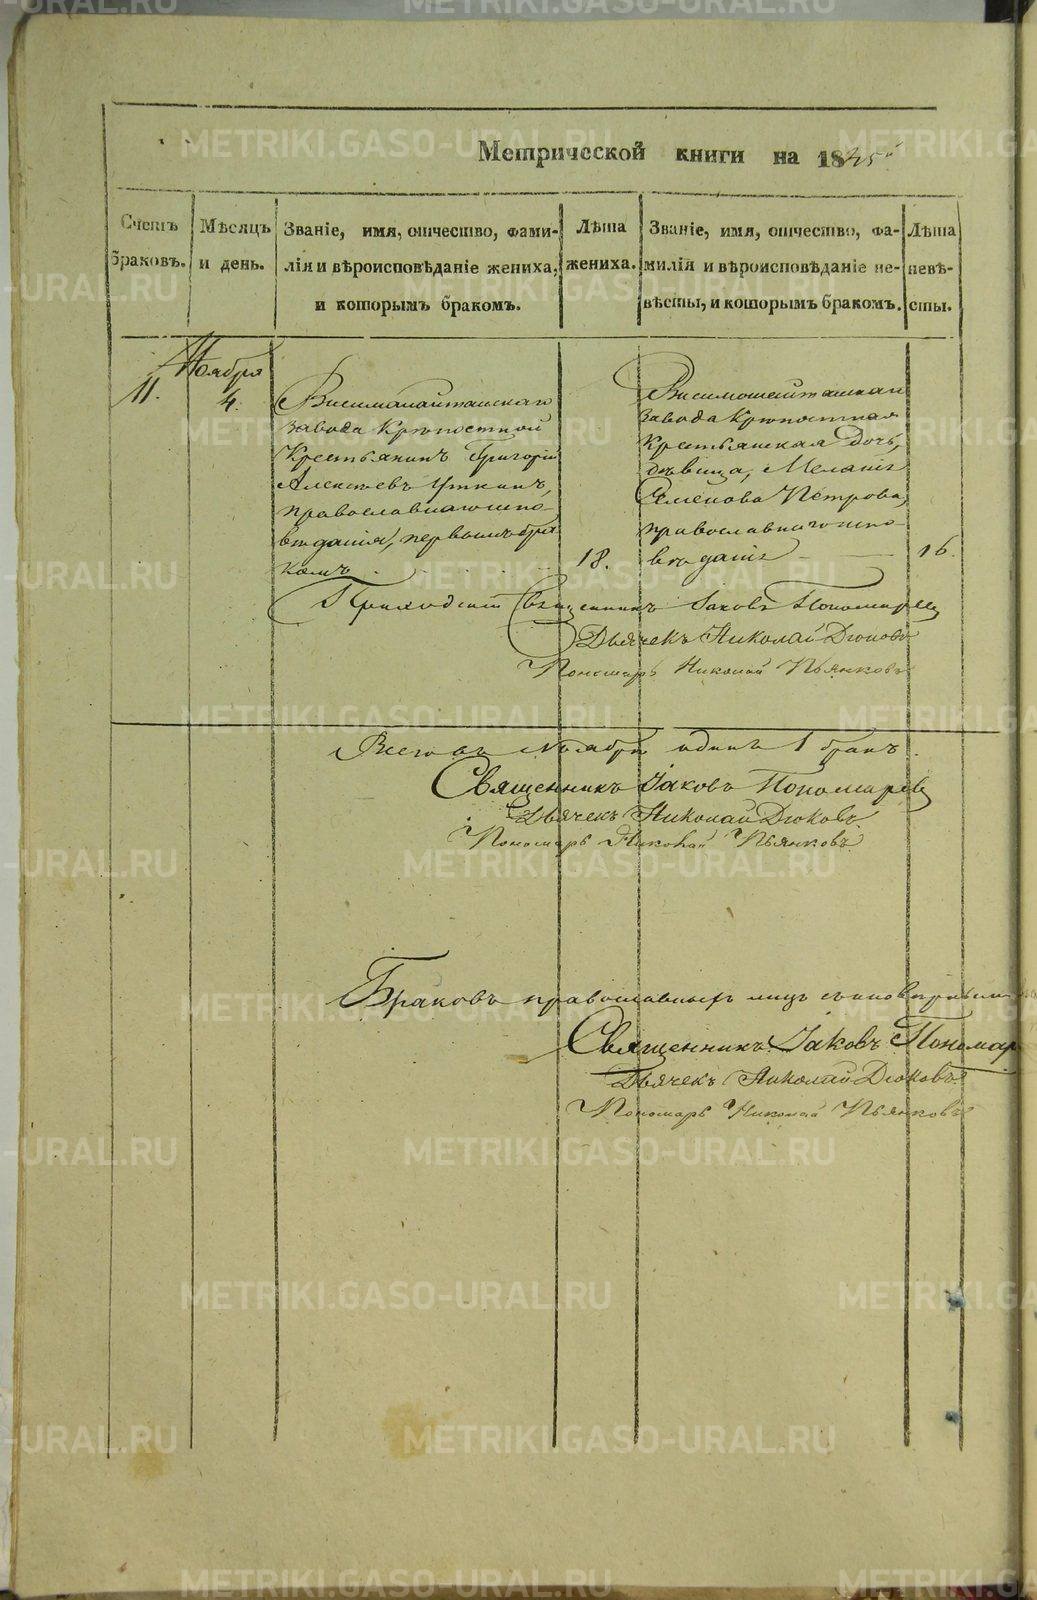 Метрической книги на 1845й
Счетъ браковъ.
Мѣсяцъ и день.
Званіе, имя, отчество, фами-
лія и вѣроисповѣданіе жениха,
и которымъ бракомъ.
Лѣта
жениха.
Званіе, имя, отчество, фа-
милія и вѣроисповѣданіе не-
вѣсты, и которымъ бракомъ.
Лѣта
невѣ-
сты.
11.
Ноября
4.
завода Крѣпостной
Крестьянинъ Григорій
Алексѣевъ Уткинъ,
православнаго испо-
вѣданія, первымъ бра
комъ
18.
завода Крѣпостная
Крестьянская дочь,
дѣвица, Меланія
Семенова Петрова,
православнаго испо-
вѣданія
16.
Приходскій Священникъ Іаковъ Пономаревъ
Дьячекъ Николай Дюковъ
Пономарь Николай Пьянковъ
Всего въ Ноябрѣ одинъ 1 бракъ.
Священникъ Іаковъ Пономаревъ
Дьячекъ Николай Дюковъ
Пономарь Николай Пьянковъ
Браковъ православныхъ лицъ съ иновѣрными
Священникъ Іаковъ Пономар
Дьячекъ Николай Дюковъ
Пономарь Николай Пьянковъ
METRIKI.GASO-URAL.RU